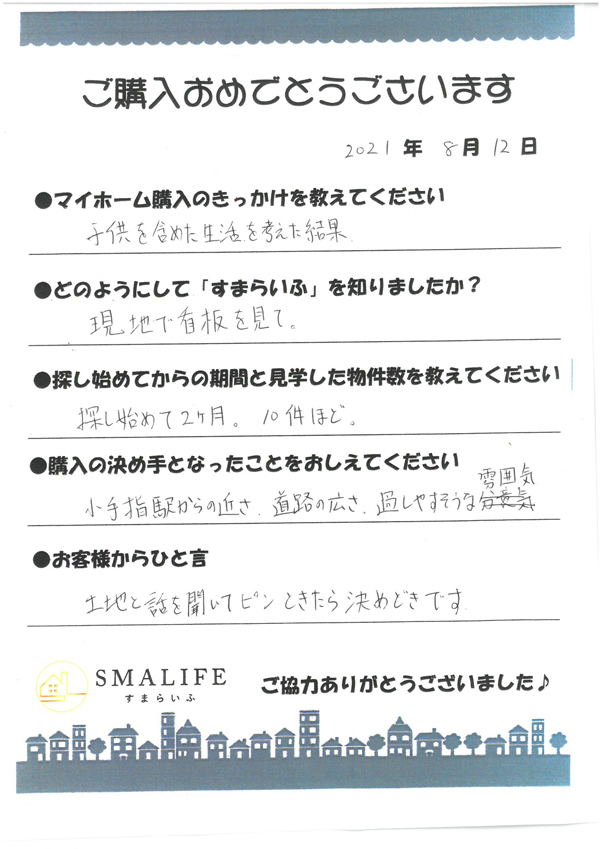 ご購入おめでとうございます
2021年 8月 12日
●マイホーム購入のきっかけを教えてください
子供を含めた生活を考えた結果
●どのようにして「すまらいふ」を知りましたか？
現地で看板を見て。
●探し始めてからの期間と見学した物件数を教えてください
探し始めて2ヶ月。10件ほど。
●購入の決め手となったことをおしえてください
雰囲気
小手指駅からの近さ、道路の広さ、過しやすそうな
●お客様からひと言
土地と話を聞いてピンときたら決めどきです
SMALIFE
すまらいふ
ご協力ありがとうございました♪